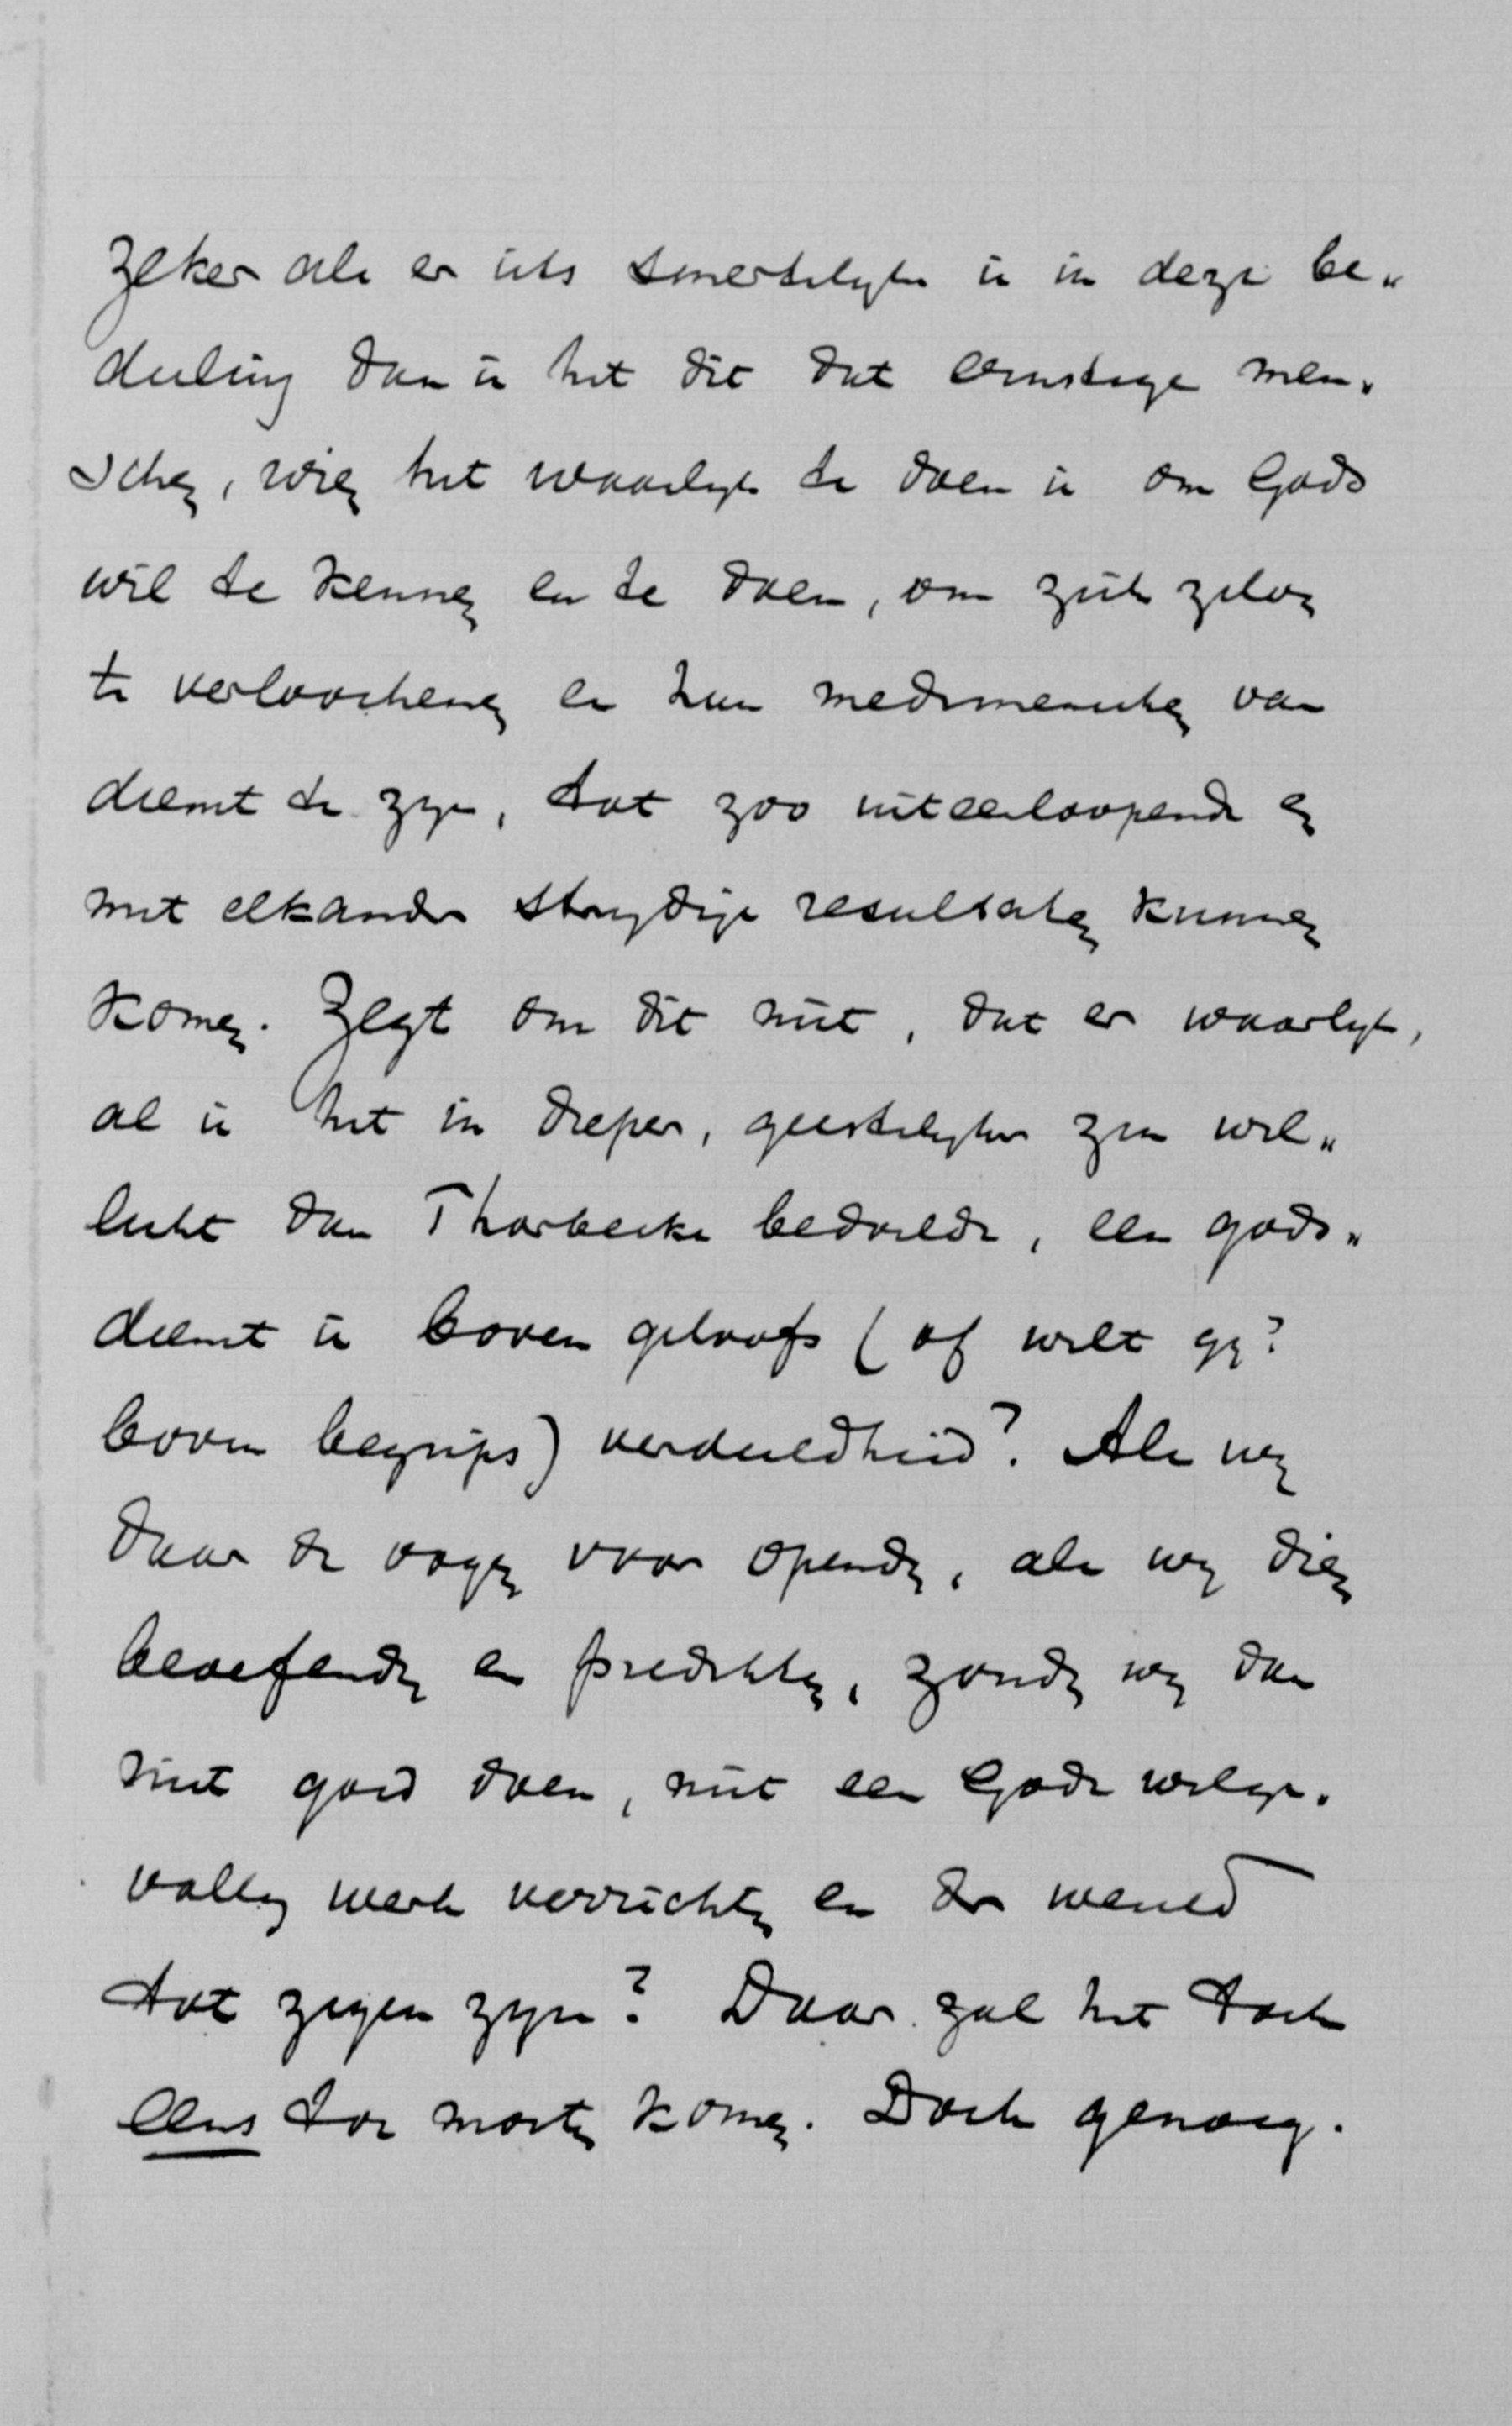 Zeker als er iets smertelyks is in deze be„
deeling dan is het dit dat ernstige men„
schen, wien het waarlyk te doen is om Gods
wil te kennen en te doen, om zich zelven
te verloochenen en hun medemenschen van
dienst te zyn, tot zoo uiteenloopende en
met elkander strydige resultaten kunnen
komen. Zegt om dit niet, dat er waarlyk,
al is het in dieper, geestelyker zin wel„
licht dan Thorbecke bedoelde, een gods„
dienst is boven geloofs (of wilt gy?
boven begrips) verdeeldheid? Als wy
daar de oogen voor openden, als wy dien
beoefenden en predikten, zouden wy dan
niet goed doen, niet een Gode welge„
vallig werk verrichten en der wereld
tot zegen zyn? Daar zal het toch
eens toe moeten komen. Doch genoeg.